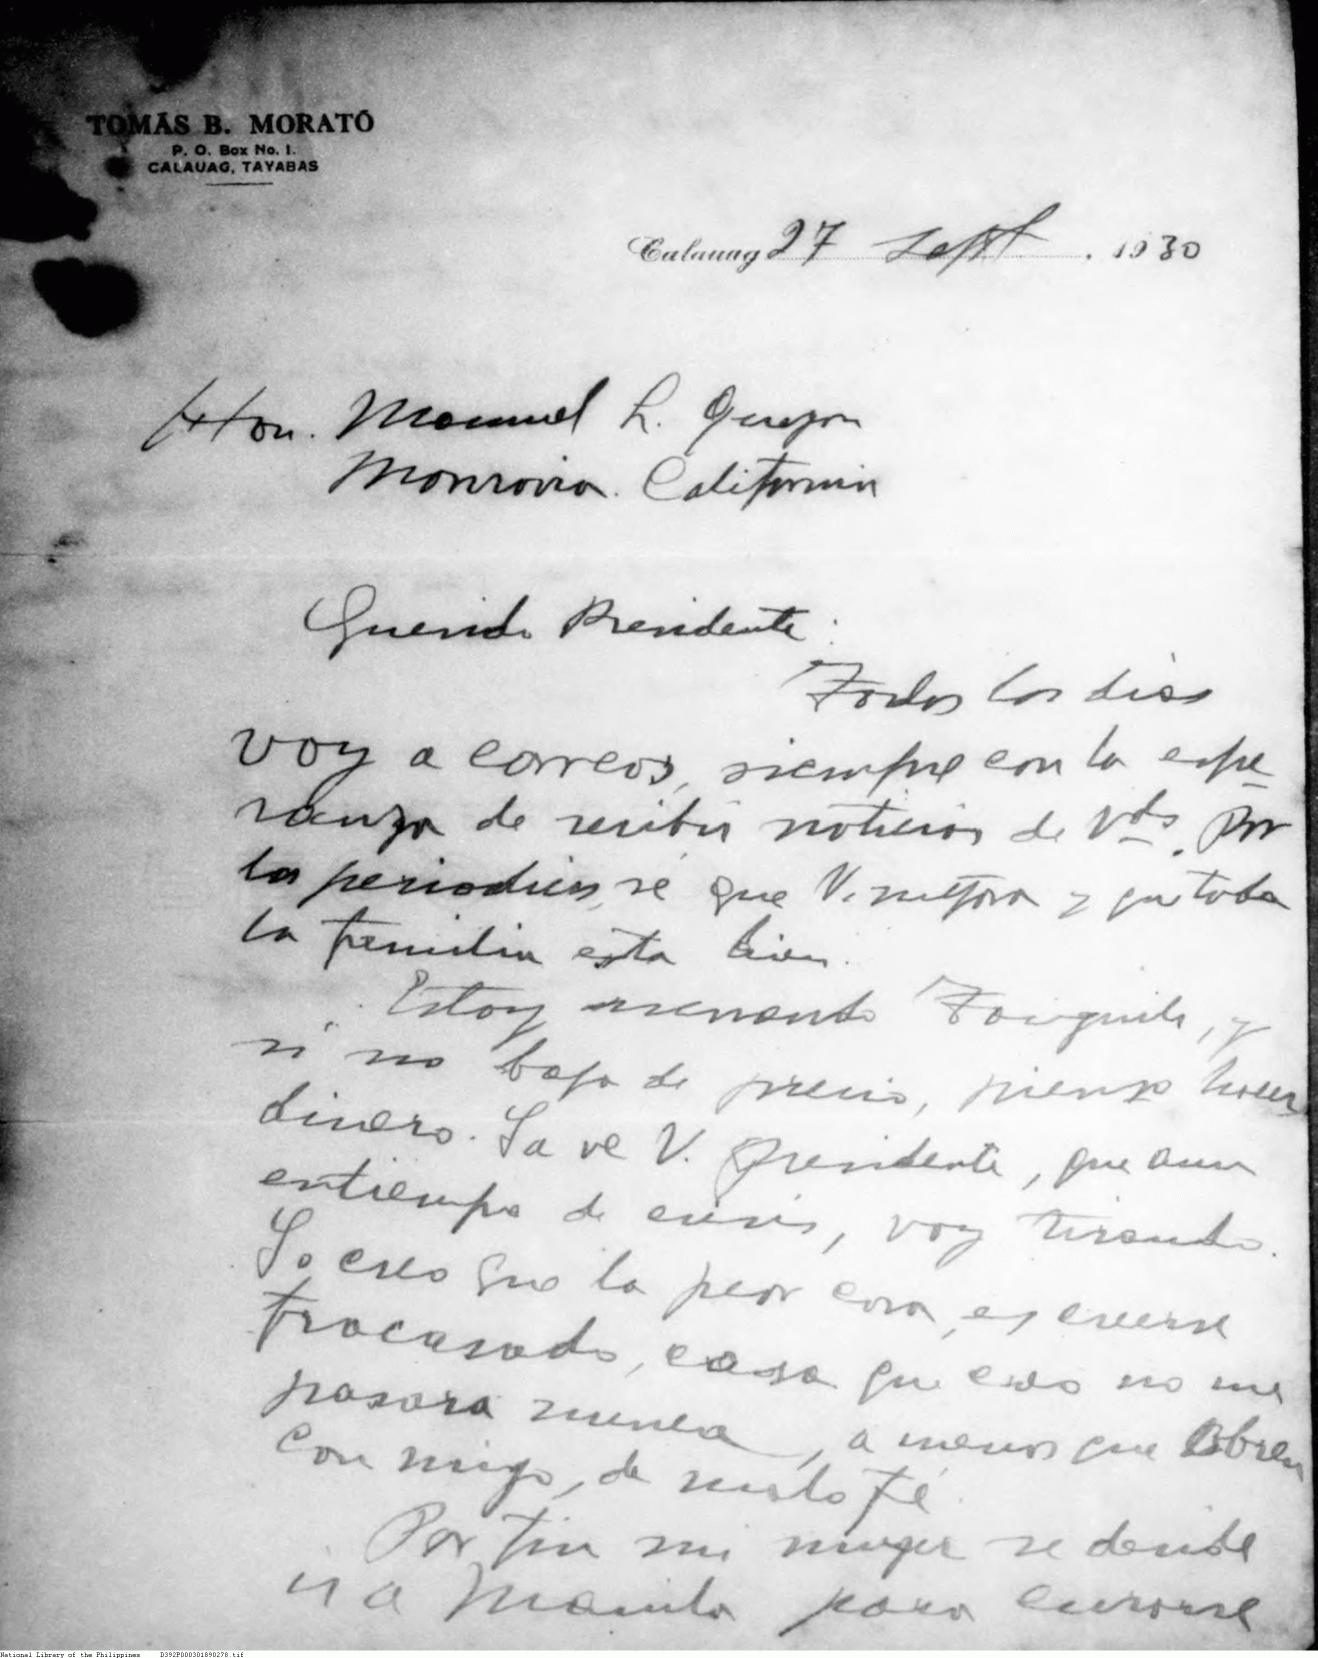 TOMÁS B. MORATÓ
P. O. Box No. 1.
CALAUAG, TAYABAS
Calauag 27 Sept. 1930
Hon. Manuel L. Quezon
Monrovia. California
Querido Presidente:
Todos los dias
voy a correos, siempre con la espe-
ranza de recibir noticias de Vds. Por
los periodicos, sé que V. mejora y que toda
la familia esta bien.
Estoy aserrando Tanguile, y
si no baja de precio, pienso hacer
dinero. Ya ve V. Presidente, que aun
en tiempo de crisis, voy tirando.
Yo creo que la peor cosa, es creerse
fracasado, cosa que creo no me
pasara nunca, a menos que obren
con migo, de mala fé.
Por fin mi mujer se decide
ir a Manila para curarse
National Library of the Philippines D392P000301890278.tif